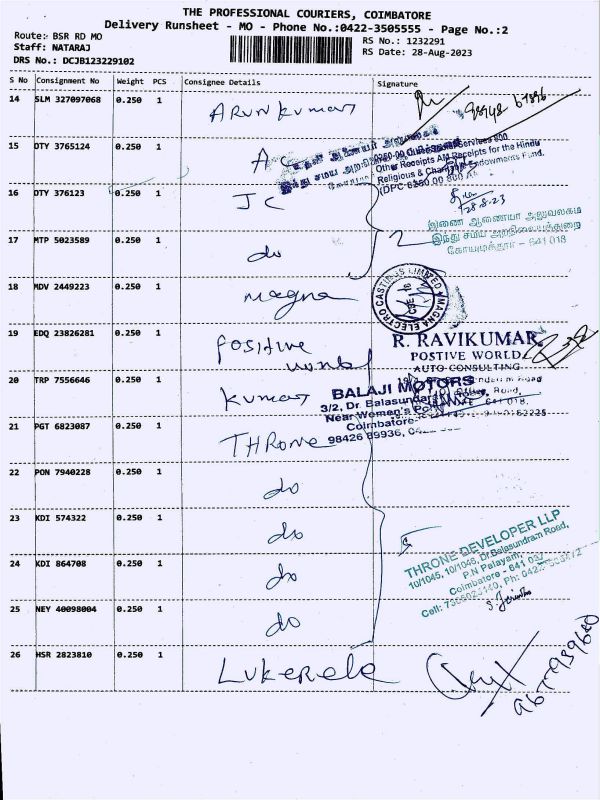 THE PROFESSIONAL COURIERS, COIMBATORE
Delivery Runsheet - MO - Phone No.:0422-3505555 - Page No.:2
Route: BSR RD MO
Staff: NATARAJ
DRS No.: DCJB123229102
RS No.: 1232291
RS Date: 28-Aug-2023
S No Consignment No Weight PCS Consignee Details Signature
14 SLM 327097068 0.250 1 Arunkumar
15 DTY 3765124 0.250 1 AC
Other Receipts AM Receipts for the Hindu
Religious & Endowments Fund.
16 DTY 376123 0.250 1 JC
28.8.23
17 MTP 5023589 0.250 1 do 2
இணை ஆணையர் அலுவலகம்
இந்து சமய அறநிலையத்துறை
கோயமுத்தூர் - 641 018
18 MDV 2449223 0.250 1 magna
MAGNA ELECTRO CASTINGS LIMITED
CBE 18
19 EDQ 23826281 0.250 1 Positive world
R. RAVIKUMAR,
POSTIVE WORLD
AUTO CONSULTING
20 TRP 7556646 0.250 1 kumar
BALAJI MOTORS
3/2, Dr. Balasundaram Road,
Near Women's Poly
Coimbatore-
98426 89936,
21 PGT 6823087 0.250 1 THRONE
22 PON 7940228 0.250 1 do
23 KDI 574322 0.250 1 do
5
THRONE DEVELOPER LLP
10/1045, 10/1046, Dr.Balasundram Road,
P.N Palayam,
Coimbatore - 641 037
24 KDI 864708 0.250 1 do
25 NEY 40098004 0.250 1 do
26 HSR 2823810 0.250 1 Lukerele